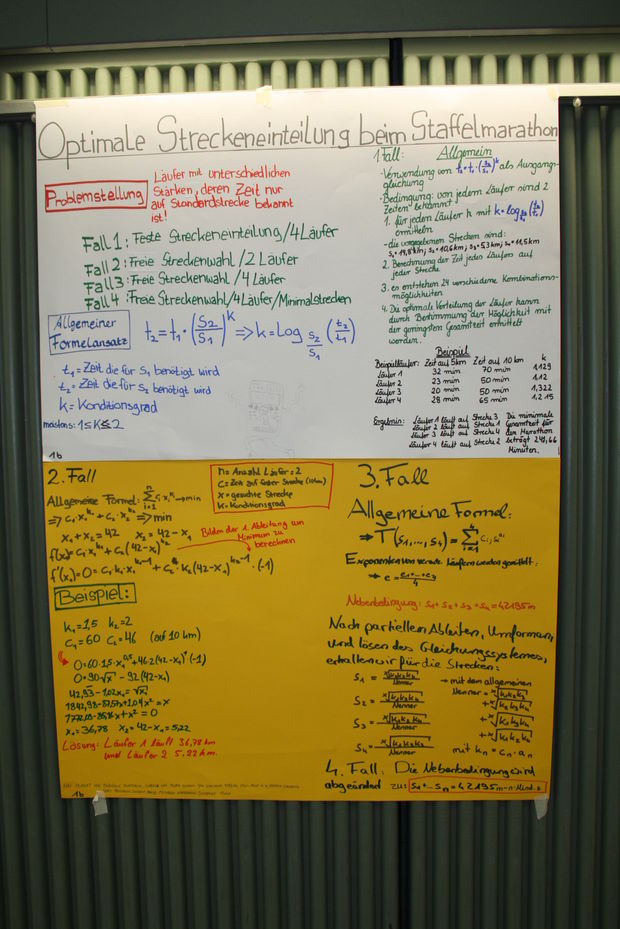 Optimale Streckeneinteilung beim Staffelmarathon
Problemstellung
Läufer mit unterschiedlichen
Stärken, deren Zeit nur
auf Standardstrecke bekannt
ist!
Fall 1: Feste Streckeneinteilung/4 Läufer
Fall 2: Freie Streckenwahl /2 Läufer
Fall 3: Freie Streckenwahl /4 Läufer
Fall 4: Freie Streckenwahl/4 Läufer/Minimalstrecken
Allgemeiner
Formelansatz
t₂ = t₁ · (S₂/S₁)^k ⇒ k = Log_{S₂/S₁} (t₂/t₁)
t₁ = Zeit die für S₁ benötigt wird
t₂ = Zeit die für S₂ benötigt wird
k = Konditionsgrad
meistens: 1 ≤ k ≤ 2
1b
1 Fall: Allgemein
-Verwendung von t₂ = t₁ · (S₂/S₁)^k als Ausgangs-
gleichung
-Bedingung: von jedem Läufer sind 2
Zeiten bekannt
1. für jeden Läufer k mit k = log_{S₂/S₁} (t₂/t₁)
ermitteln
- die vorgegebenen Strecken sind:
S₂ = 10,6 km; S₃ = 5,3 km; S₄ = 11,5 km
2. Berechnung der Zeit jedes Läufers auf
jeder Strecke
3. es entstehen 24 verschiedene Kombinations-
möglichkeiten
4. Die optimale Verteilung der Läufer kann
durch Bestimmung der Möglichkeit mit
der geringsten Gesamtzeit ermittelt
werden.
Beispiel
Beispielläufer: Zeit auf 5km Zeit auf 10 km k
Läufer 1 32 min 70 min 1,129
Läufer 2 23 min 50 min 1,12
Läufer 3 20 min 50 min 1,322
Läufer 4 28 min 65 min 1,215
Ergebnis: Läufer 1 läuft auf Strecke 3
Läufer 2 läuft auf Strecke 1
Läufer 3 läuft auf Strecke 4
Läufer 4 läuft auf Strecke 2
Die minimale
Gesamtzeit für
den Marathon
beträgt 241,66
Minuten.
2. Fall
n = Anzahl Läufer = 2
c = Zeit auf fester Strecke (10km)
x = gesuchte Strecke
k = Konditionsgrad
Allgemeine Formel: → min
⇒ min
x₁ + x₂ = 42 x₂ = 42 - x₁
f(x₁) = c₁·x₁^{k₁} + c₂(42-x₁)^{k₂}
Bilden der 1. Ableitung um
Minimum zu
berechnen
f'(x₁) = 0 = c₁·k₁·x₁^{k₁-1} + c₂·k₂(42-x₁)^{k₂-1}·(-1)
Beispiel:
k₁ = 1,5 k₂ = 2
c₁ = 60 c₂ = 46 (auf 10 km)
0 = 60·1,5·x₁^{0,5} + 46·2(42-x₁)¹(-1)
0 = 90√x - 92(42-x)
x₁ = 36,78 x₂ = 42 - x₁ = 5,22
Lösung: Läufer 1 läuft 36,78 km
und Läufer 2 5,22 km.
1b
3. Fall
Allgemeine Formel:
⇒ T(S₁,...,S₄) =
Exponenten von
Läufern werden gemittelt:
Nebenbedingung: S₁ + S₂ + S₃ + S₄ = 42195m
Nach partiellem Ableiten, Umformen
und lösen des Gleichungssystemes,
erhalten wir für die Strecken:
S₁ =
S₂ =
S₃ =
S₄ =
→ mit dem allgemeinen
Nenner =
mit kₙ = cₙ · aₙ
4. Fall: Die Nebenbedingung wird
abgeändert zu: S₁ + ... Sₙ = 42195m - n · Mind.s